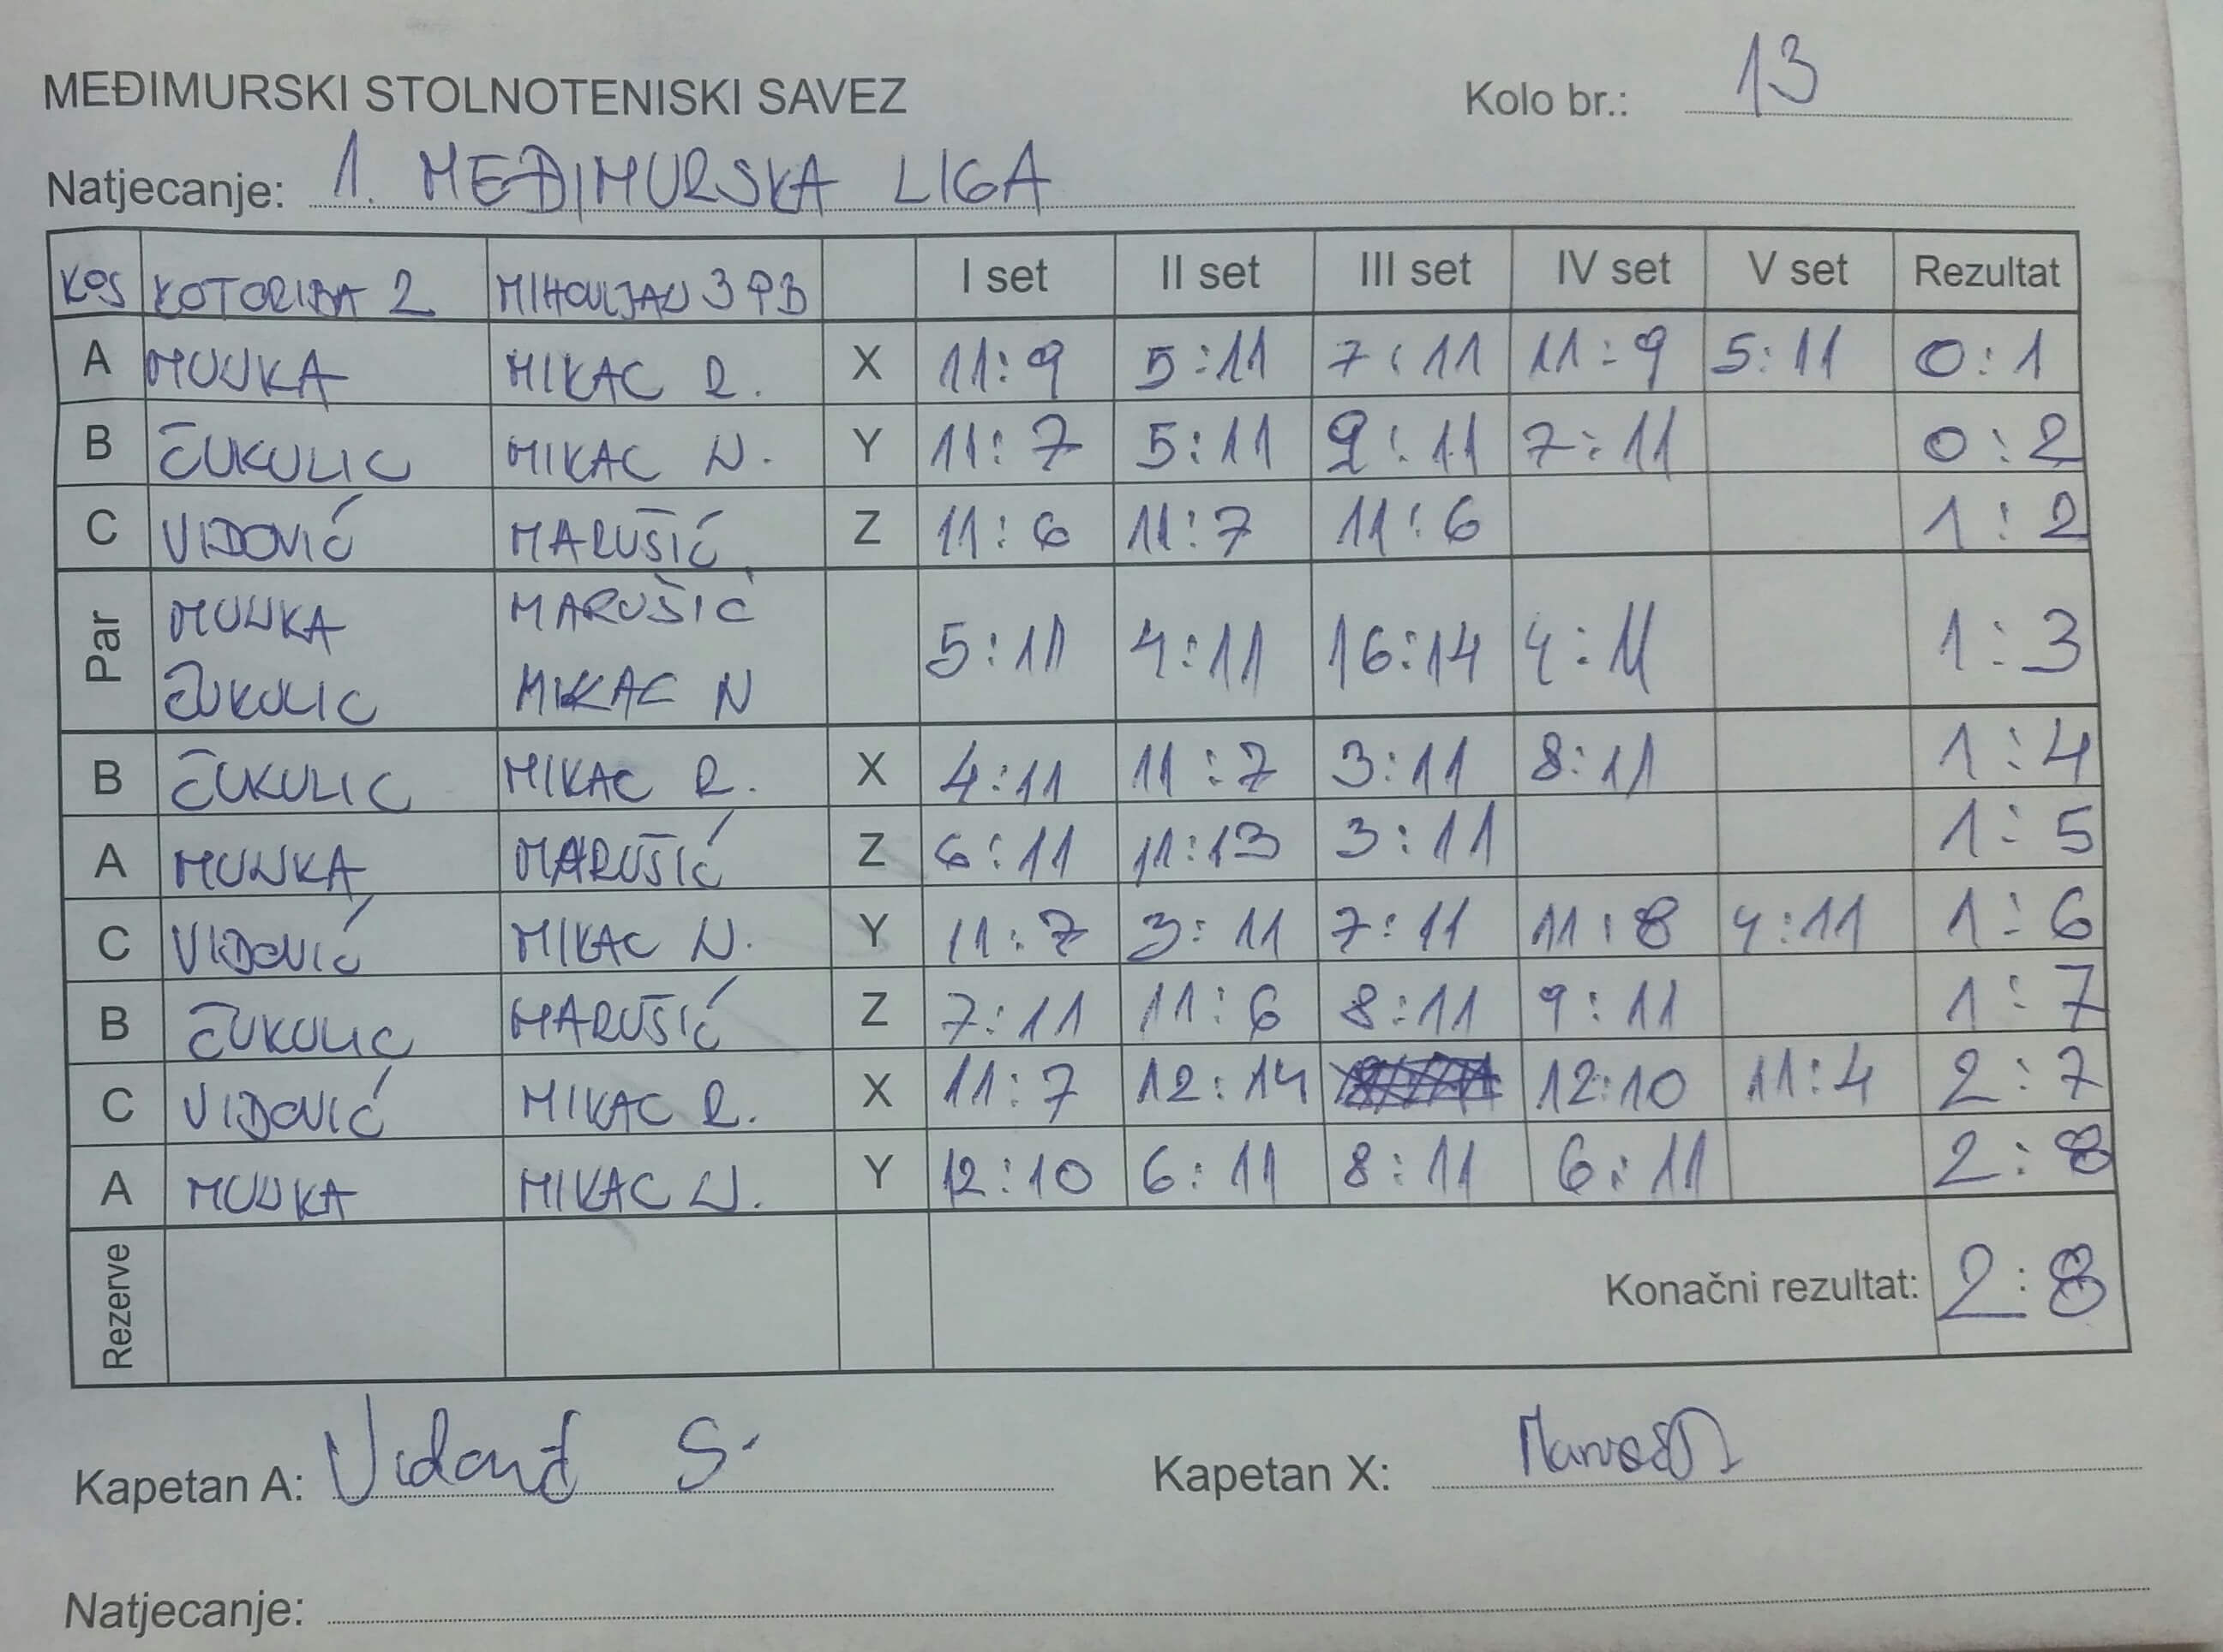 MEĐIMURSKI STOLNOTENISKI SAVEZ Kolo br.: 13
Natjecanje: 1. MEĐIMURSKA LIGA
KOS KOTORIBA 2 MIHOVLJAN 3 PB I set II set III set IV set V set Rezultat
A MUNKA MIKAC R. X 11:9 5:11 7:11 11:9 5:11 0:1
B ČUKULIC MIKAC N. Y 11:7 5:11 9:11 7:11 0:2
C VIDOVIĆ MARUŠIĆ Z 11:6 11:7 11:6 1:2
Par MUNKA MARUŠIĆ 5:11 4:11 16:14 4:11 1:3
ČUKULIC MIKAC N
B ČUKULIC MIKAC R. X 4:11 11:7 3:11 8:11 1:4
A MUNKA MARUŠIĆ Z 6:11 11:13 3:11 1:5
C VIDOVIĆ MIKAC N. Y 11:7 3:11 7:11 11:8 4:11 1:6
B ČUKULIC MARUŠIĆ Z 7:11 11:6 8:11 9:11 1:7
C VIDOVIĆ MIKAC R. X 11:7 12:14 12:10 11:4 2:7
A MUNKA MIKAC N. Y 12:10 6:11 8:11 6:11 2:8
Rezerve Konačni rezultat: 2:8
Kapetan A: Vidović S. Kapetan X:
Natjecanje: